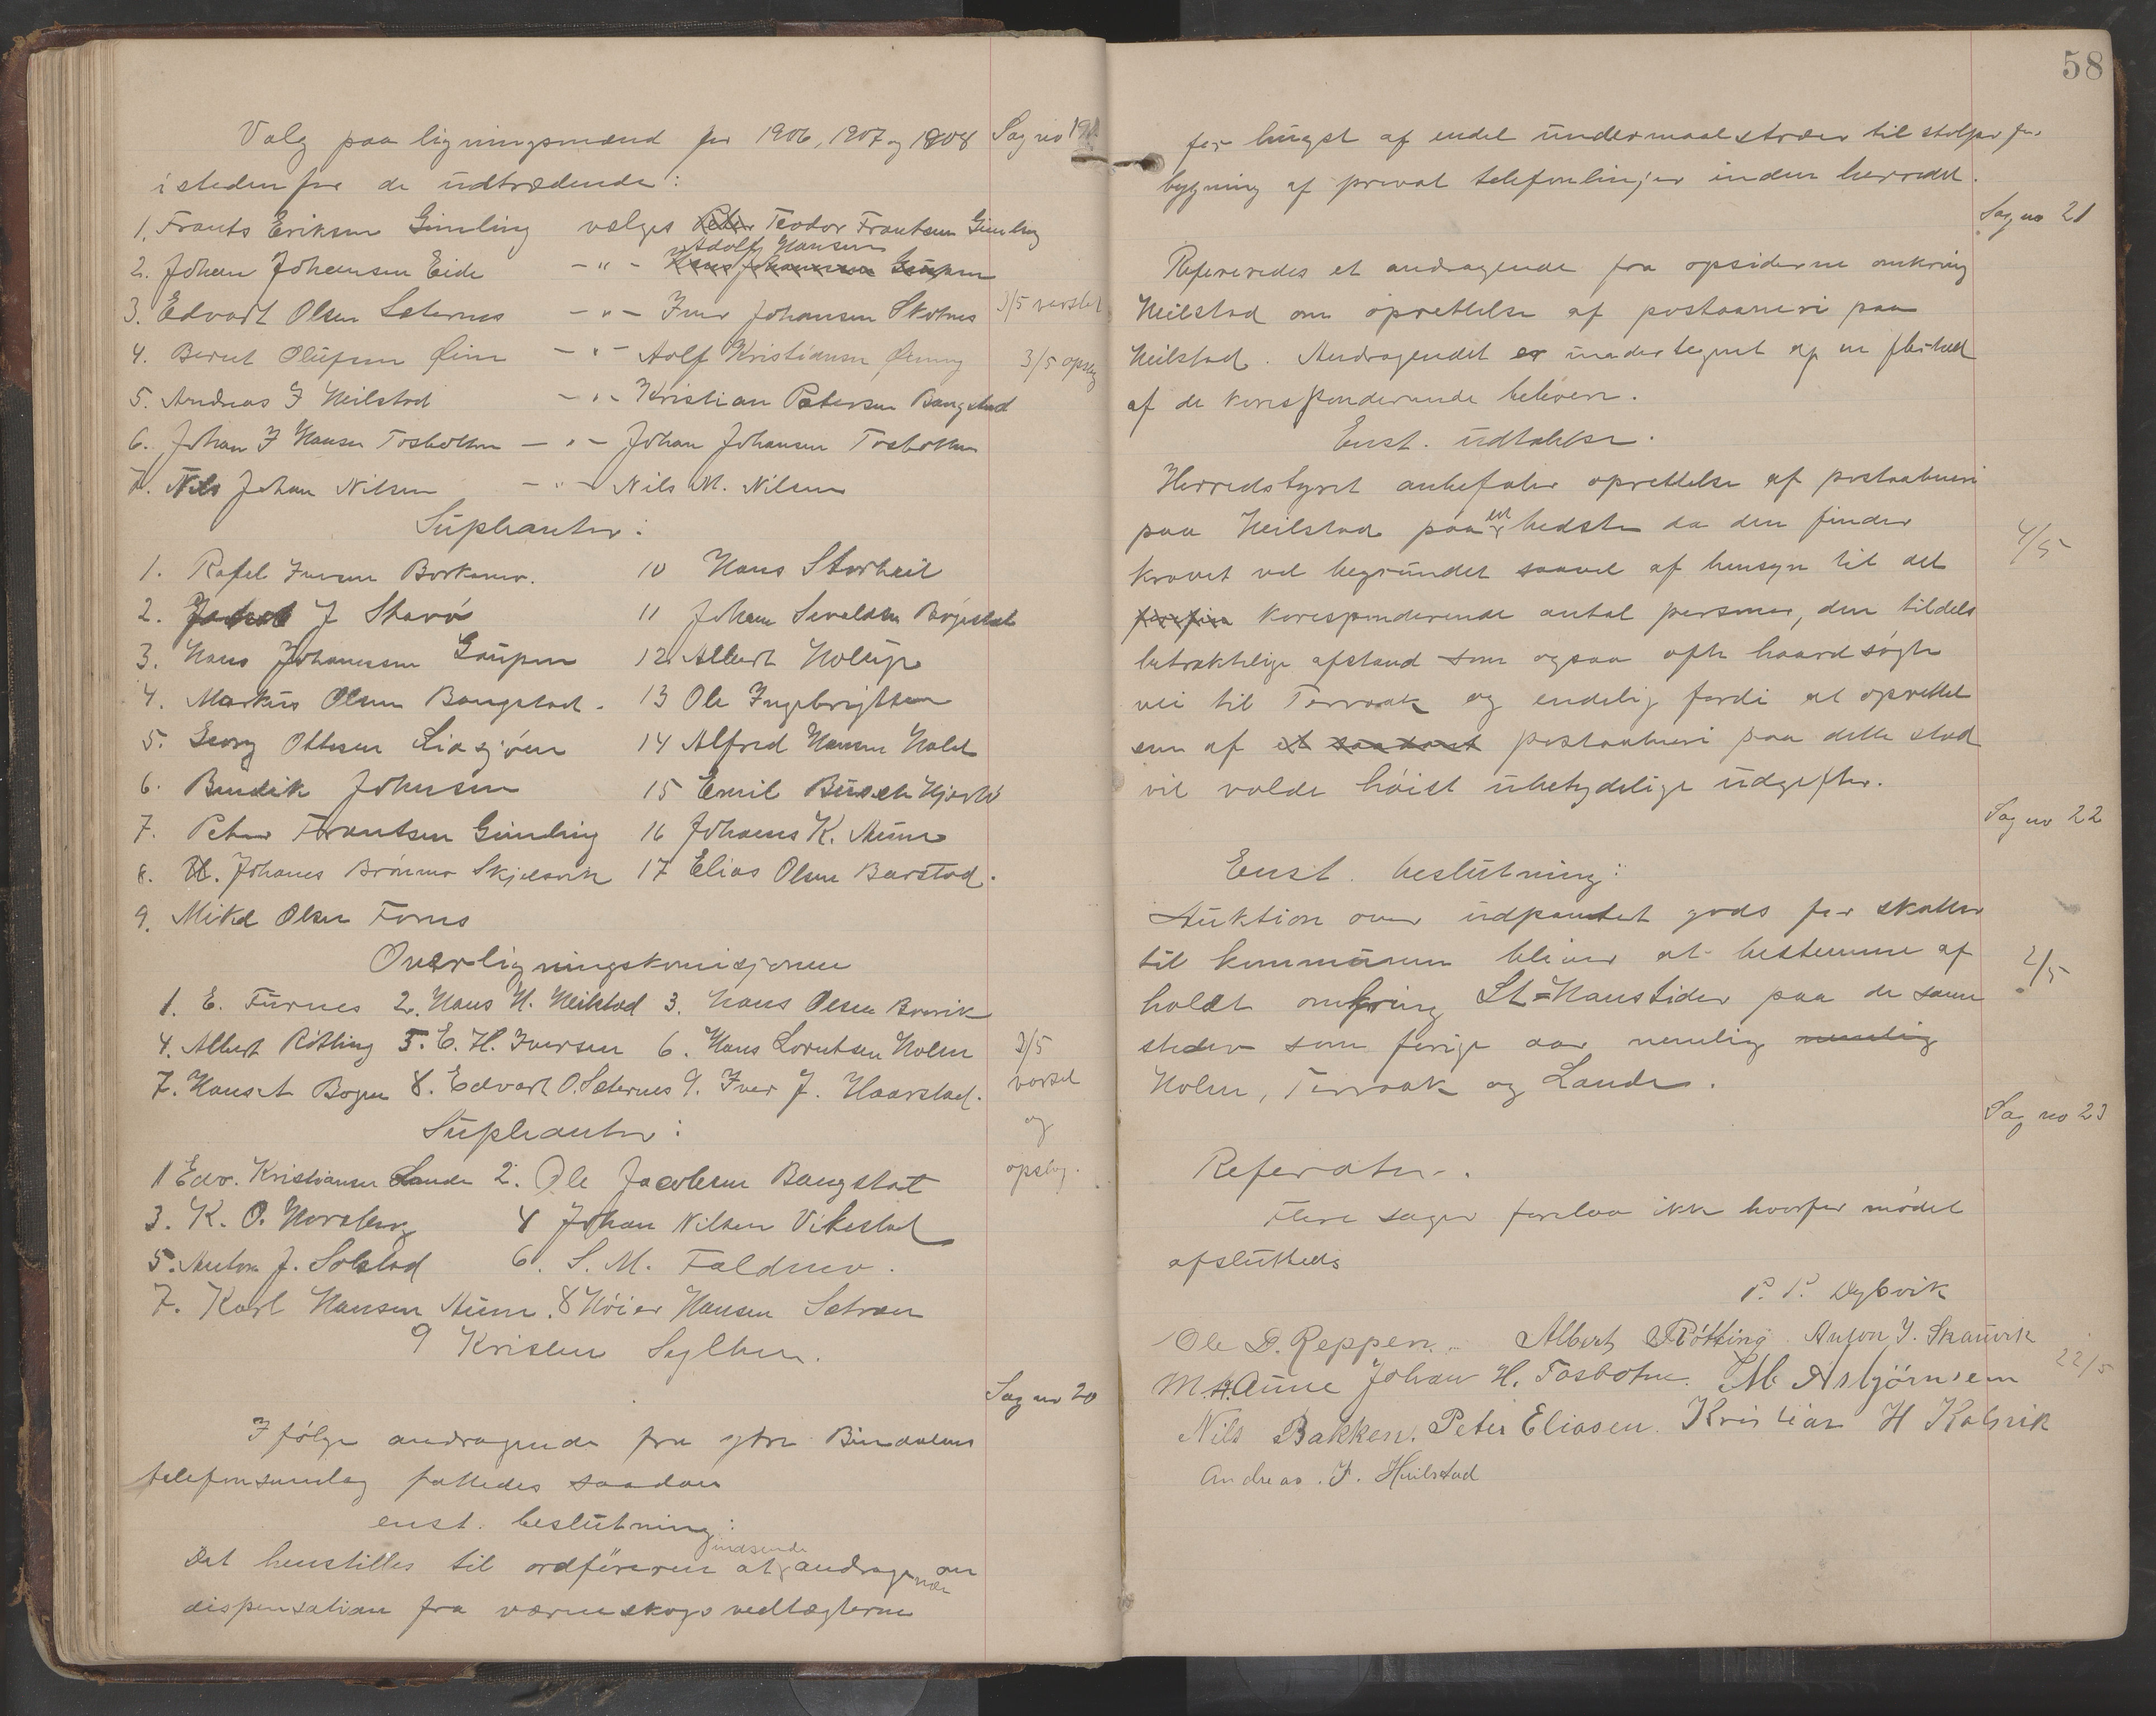 Valg paa ligningsmænd for 1906, 1907 og 1908 Sag no 19
istedenfor de udtrædende:
1. Frants Eriksen Gimling vælges Peder Teodor Frantsen Gimling
Adolf Hansen
2. Johan Johansen Eide -"- Hans Johannesen Gaupen
3. Edvart Olsen Seternes -"- Iver Johansen Skotnes 3/5 varslet
4. Bernt Olufsen Øim -"- Adolf Kristiansen 3/5 opslag
5. Andreas F Heilstad -"- Kristian Petersen Bangstad
6. Johan F Hansen Tosbotten -"- Johan Johansen Tosbotten
7. Nils Johan Nilsen -"- Nils M. Nilsen
Supleanter:
1. Rafel Iversen Borkamo. 10 Hans Storheil
2. J Starø 11 Johan Sevaldsen Bøgestad
3. Hans Johannesen Gaupen 12. Albert Holup
4. Markus Olsen Bangstad. 13 Ole Ingebrigtsen
5. Georg Ottesen Liasjøen 14 Alfred Hansen Hald
6. Bendik Johnsen 15 Emil Busch
7. Peter Frantsen Gimling 16 Johanes K. Aune
8. Johanes Brønmo Skjelsvik 17 Elias Olsen Barstad.
9. Mikal Olsen Fornes
Overligningskomisjonen
1. E. Furnes 2. Hans H. Heilstad 3. Hans Olsen Brevik
4. Albert Røtting 5. E. H. Iversen 6. Hans Lorntsen Holm 3/5
7. Hans A Bogen 8. Edvart O. Seternes 9. Iver J. Haarstad. varsel
og
Supleanter:
1 Edv. Kristiansen Lande 2. Ole Jacobsen Bangstad opslag.
3. K. O. Horsberg 4 Johan Nilsen Vikestad
5. Anton J. Solstad 6. S. M. Faldmo.
7. Karl Hansen Aune. 8 Høier Hansen Sætran
9 Kristen Sylten.
Sag no 20
Ifølge andragende fra ytre Bindalens
telefonsamlag fattedes saadan
enst. beslutning:
indsende
Det henstilles til ordføreren at andragende om
dispensation fra værneskogvedtægterne
58
for hugst af endel undermaalstrær til stolper for
bygning af privat telefonlinjer inden herredet.
Sag no 21
Refereredes et andragende fra opsiderne omkring
Heilstad om oprettelse af postaapneri paa
Heilstad. Andragendet er undertegnet af en flerhed
af de koresponderende beboere.
Enst. udtalelse.
Herredstyret anbefaler oprettelse af postaabneri
paa Heilstad paa det bedste da den finder 4/5
kravet vel begrundet saavel af hensyn til det
koresponderende antal personer, den tildels
betraktelige afstand som ogsaa ofte haardsøgte
vei til Terraak og endelig fordi at oprettel
sen af et saadant postaabneri paa dette sted
vil volde høist ubetydelige udgifter.
Sag no 22
Enst. beslutning:
Auktion over udpantet gods for skatter
til kommunen bliver at bestemme af 2/5
holdt omkring St=Hanstider paa de samme
steder som forrige aar nemlig nemlig
Holm, Terraak og Lande.
Sag no 23
Referater.
Flere sager forelaa ikke hvorfor mødet
afsluttedes
P. P. Dybvik
Ole D. Reppen. Albert Røtting Anton J. Skauvik
M. H. Aune Johan H. Tosbotn. M Asbjørnsen 22/5
Nils Bakken. Peter Eliasen. Kristian H Kalvik
Andreas. F. Heilstad